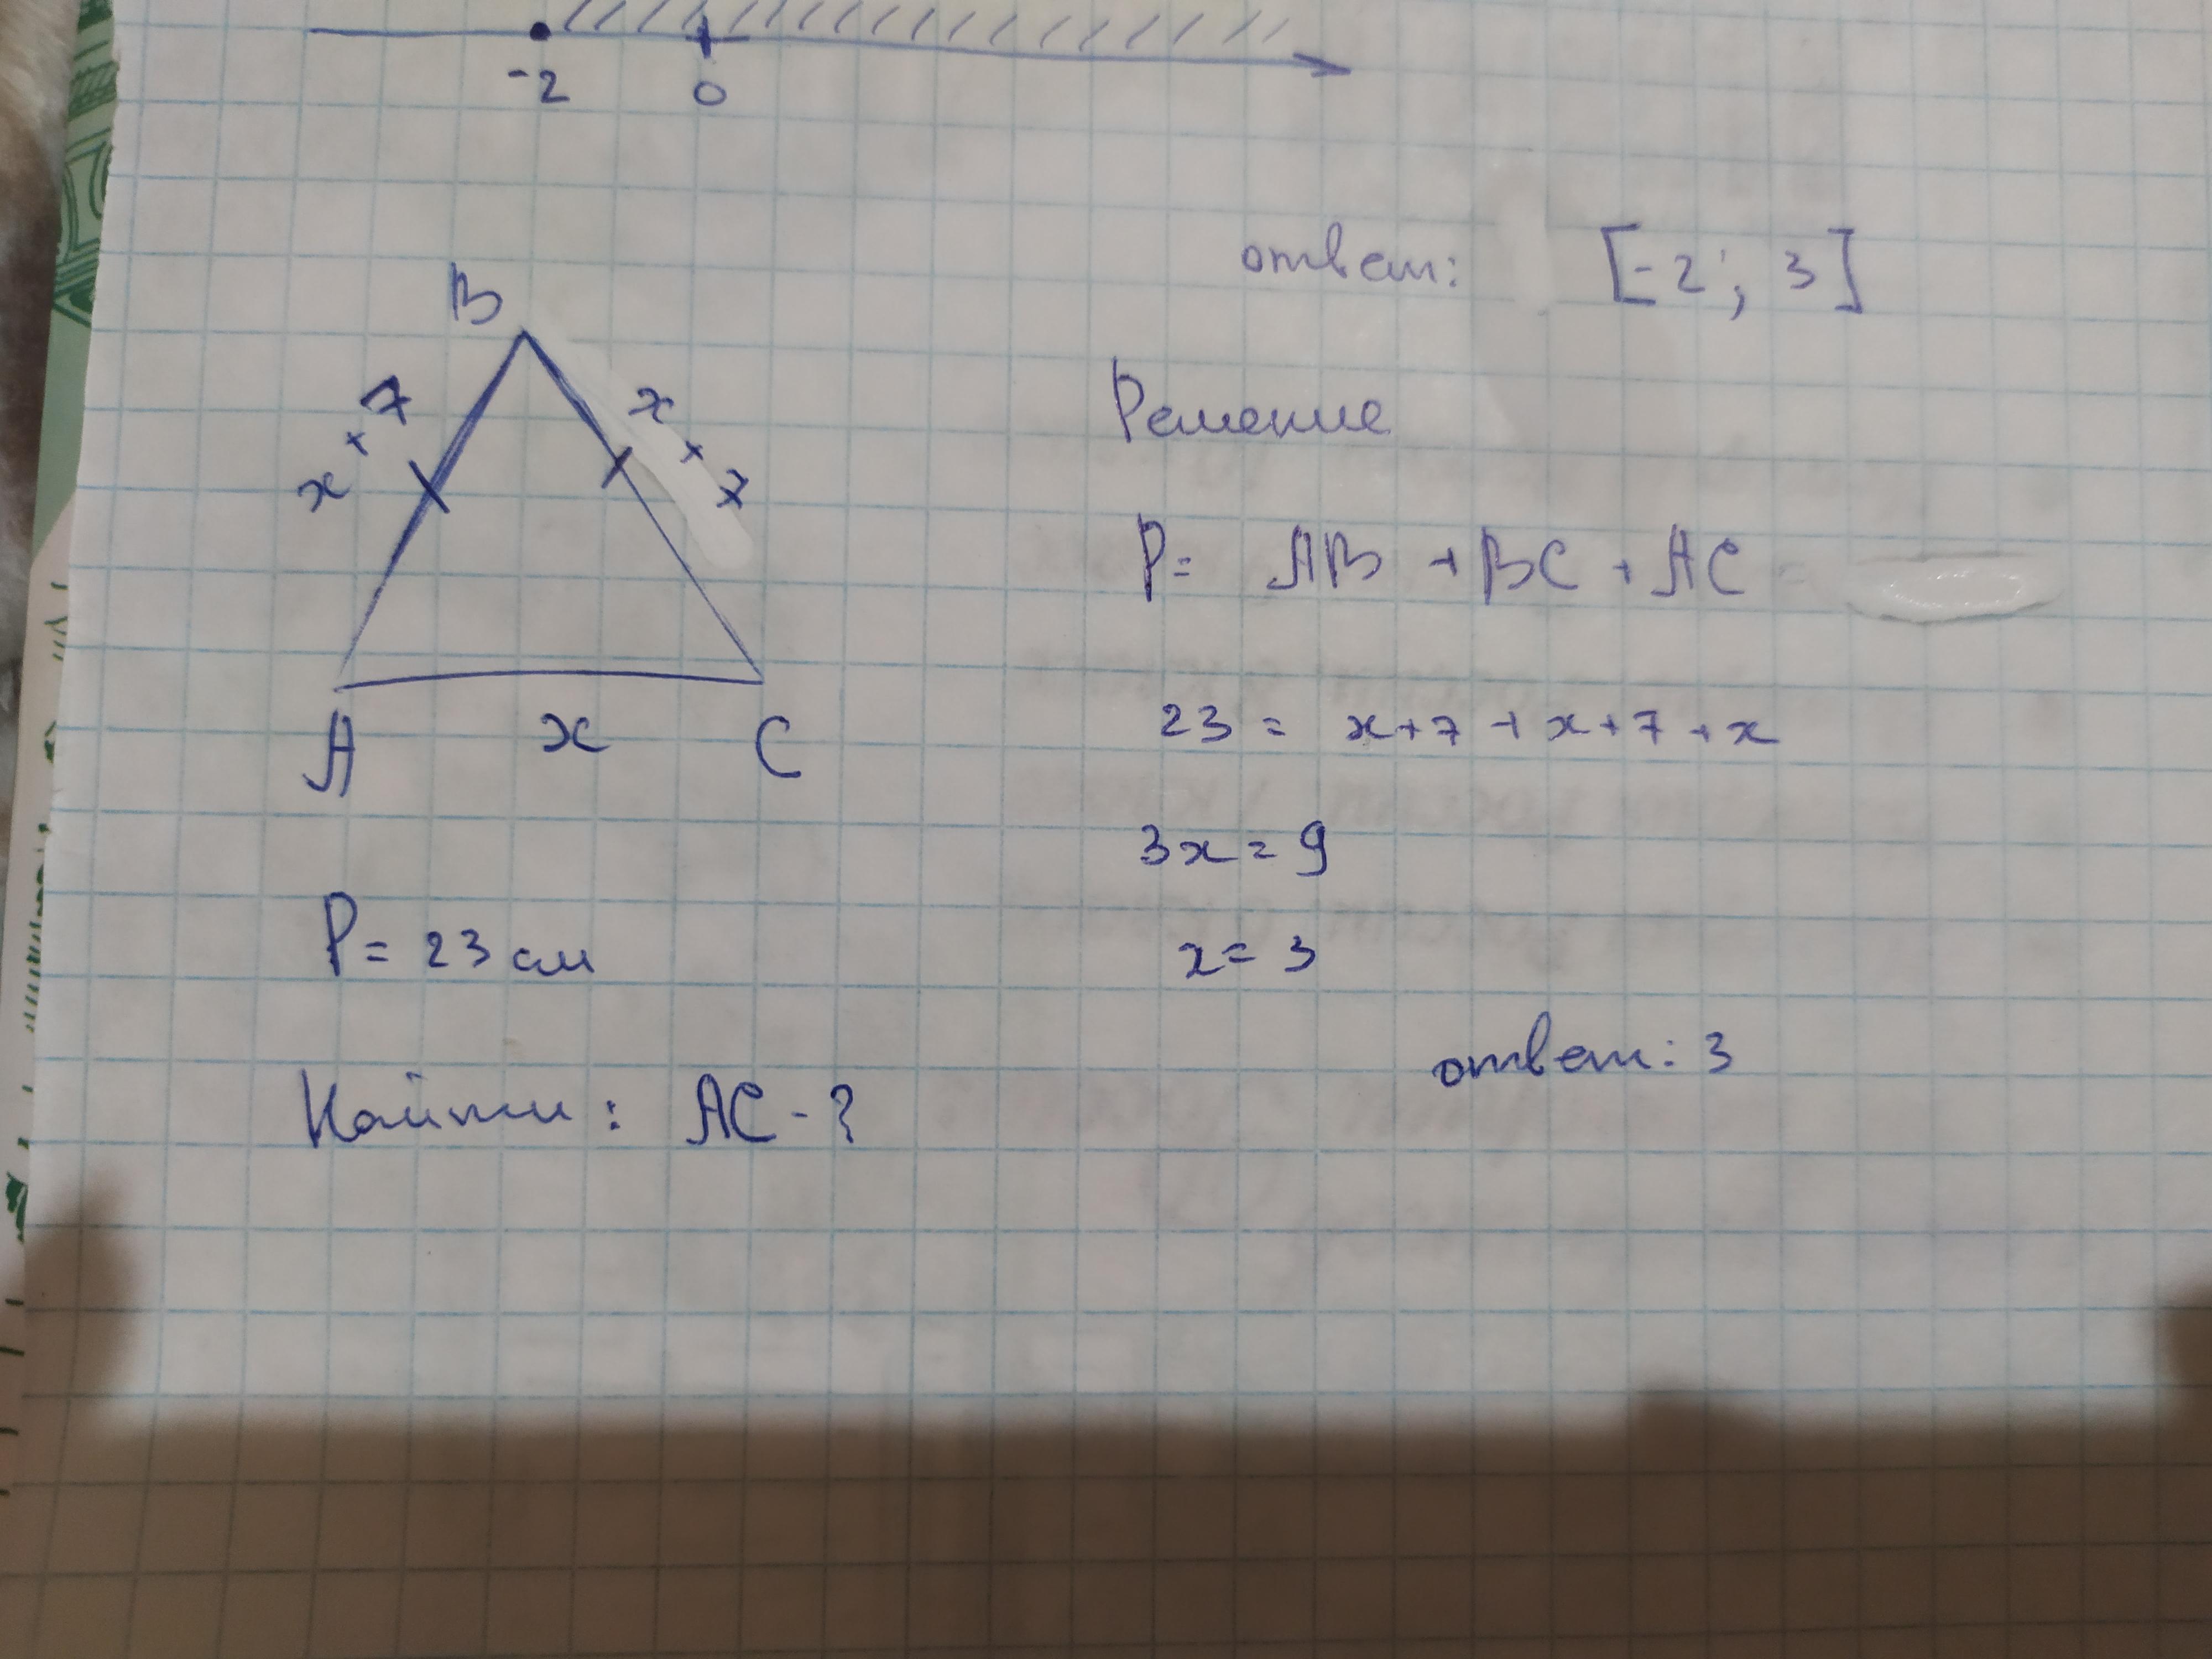 -2 0
ответ: [-2; 3]
B
x + 7
x + 7
A x C
P = 23 см
Найти: AC - ?
Решение
P = AB + BC + AC =
23 = x+7 + x+7 + x
3x = 9
x = 3
ответ: 3